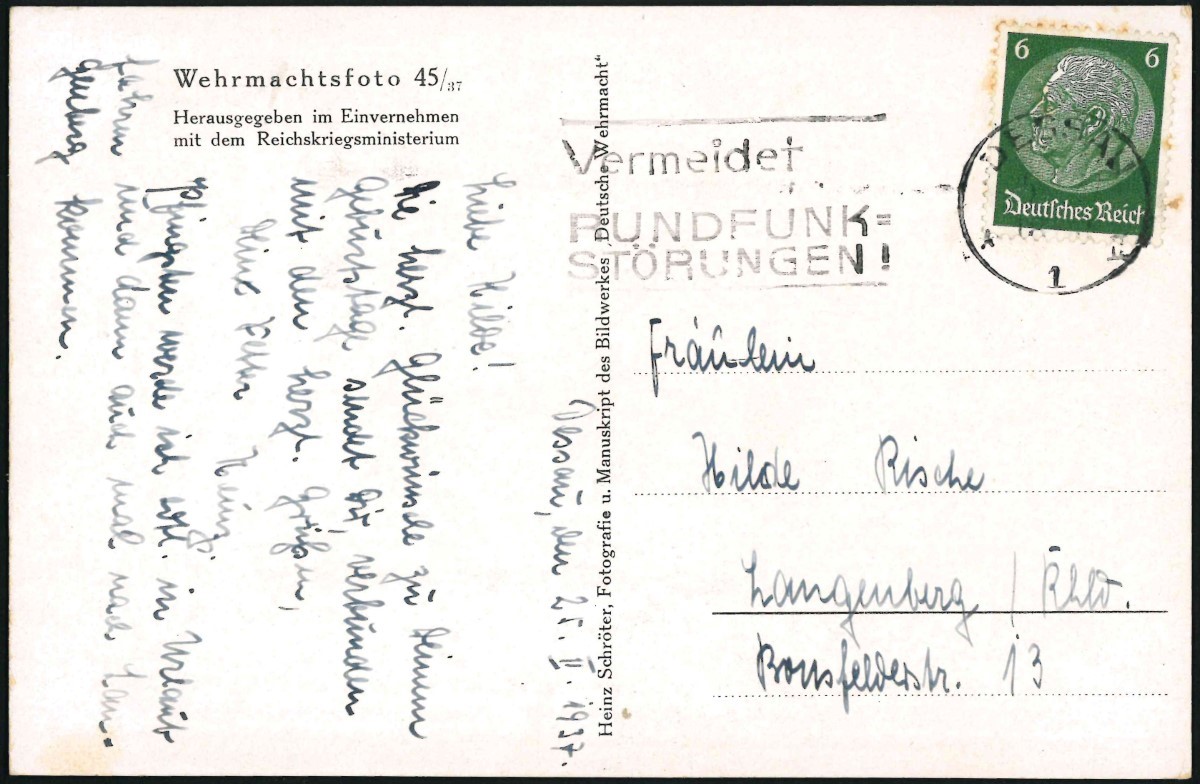 Wehrmachtsfoto 45/37
Herausgegeben im Einvernehmen
mit dem Reichskriegsministerium
Dessau, den 25. II. 1937.
Liebe Hilde!
Die herzl. Glückwünsche zu Deinem
Geburtstage sendet Dir verbunden
mit den herzl. Grüßen,
Dein Vetter Heinz.
Pfingsten werde ich evtl. in Urlaub
fahren und dann auch mal nach Lan-
genberg kommen.
Heinz Schröter, Fotografie u. Manuskript des Bildwerkes „Deutsche Wehrmacht“
Vermeidet
RUNDFUNK=
STÖRUNGEN!
DESSAU
1
6 6
Deutsches Reich
Fräulein
Hilde Rische
Langenberg / Rhld.
Bonsfelderstr. 13